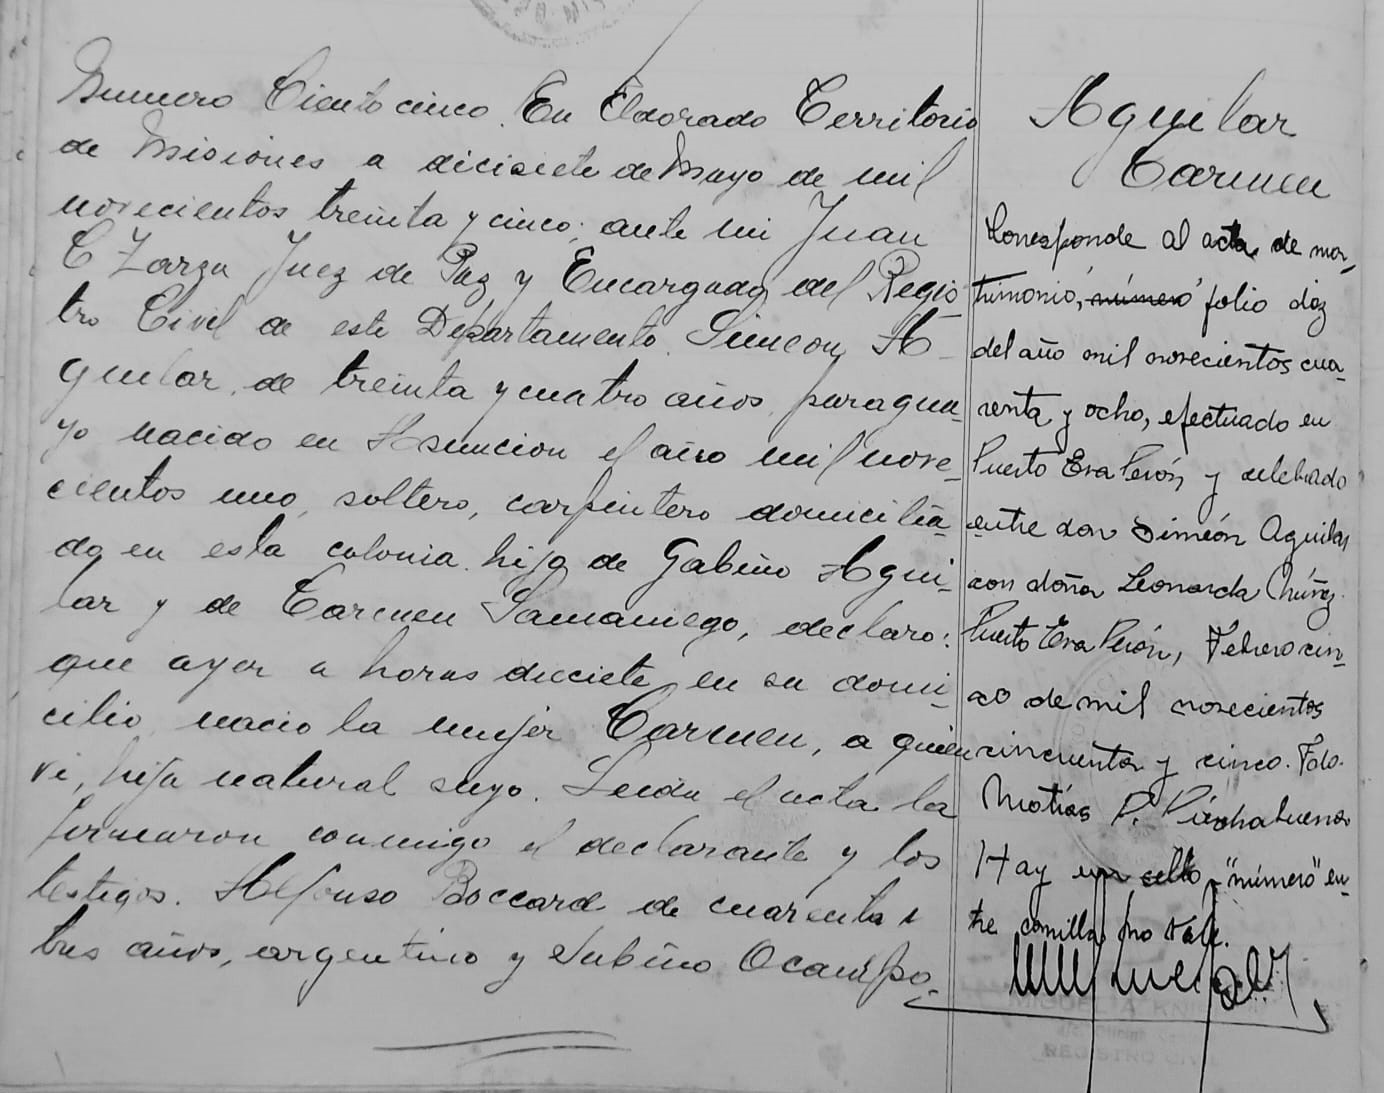 Numero Ciento cinco. En Eldorado Territorio
de Misiones a diciciete de Mayo de mil
novecientos treinta y cinco; ante mi Juan
C Zarza Juez de Paz y Encargado del Regis
tro Civil de este Departamento. Simeon A-
guilar, de treinta y cuatro años, paragua-
yo nacido en Asuncion el año mil nove-
cientos uno, soltero, carpintero domicilia-
do en esta colonia. hijo de Gabino Agui-
lar y de Carmen Samaniego, declaro:
que ayer a horas dieciete en su domi-
cilio, nacio la mujer Carmen, a quien
vi, hija natural suyo. Leida el acta la
firmaron conmigo el declarante y los
testigos. Alfonso Boccard de cuarenta y
tres años, argentino y Sabino Ocampo,
Aguilar
Carmen
Corresponde al acta de ma-
trimonio, "número" folio diez
del año mil novecientos cua-
renta y ocho, efectuado en
Puerto Eva Perón, y celebrado
entre don Simeón Aguilar
con doña Leonarda Núñez.
Puerto Eva Perón, Febrero cin-
co de mil novecientos
cincuenta y cinco. Fdo.
Matías P.
Hay un sello - "número" en-
tre comillas no vale.
REGISTRO CIVIL